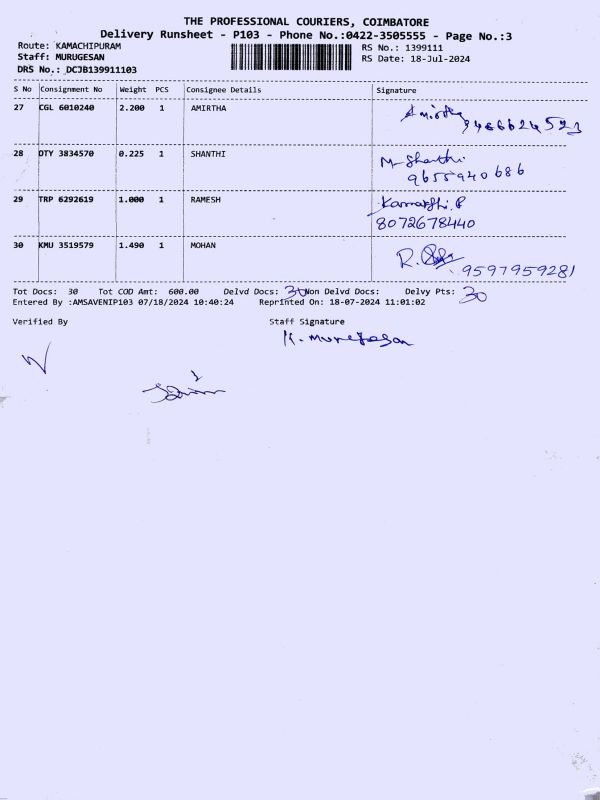 THE PROFESSIONAL COURIERS, COIMBATORE
Delivery Runsheet - P103 - Phone No.:0422-3505555 - Page No.:3
Route: KAMACHIPURAM RS No.: 1399111
Staff: MURUGESAN RS Date: 18-Jul-2024
DRS No.: DCJB139911103
S No Consignment No Weight PCS Consignee Details Signature
27 CGL 6010240 2.200 1 AMIRTHA Amirtha
28 DTY 3834570 0.225 1 SHANTHI M. Shanthi
9655940686
29 TRP 6292619 1.000 1 RAMESH
8072678440
30 KMU 3519579 1.490 1 MOHAN R.
9597959281
Tot Docs: 30 Tot COD Amt: 600.00 Delvd Docs: 30 Non Delvd Docs: Delvy Pts: 30
Entered By :AMSAVENIP103 07/18/2024 10:40:24 Reprinted On: 18-07-2024 11:01:02
Verified By Staff Signature
K. Murugesan